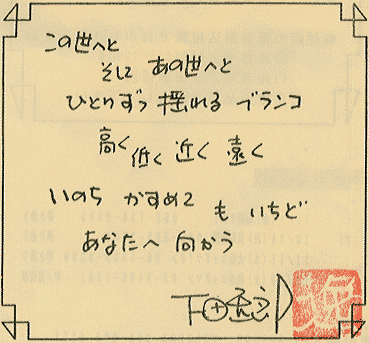 この世へと
そして あの世へと
ひとりずつ 揺れる ブランコ
高く 低く 近く 遠く
いのち かすめて も いちど
あなたへ 向かう